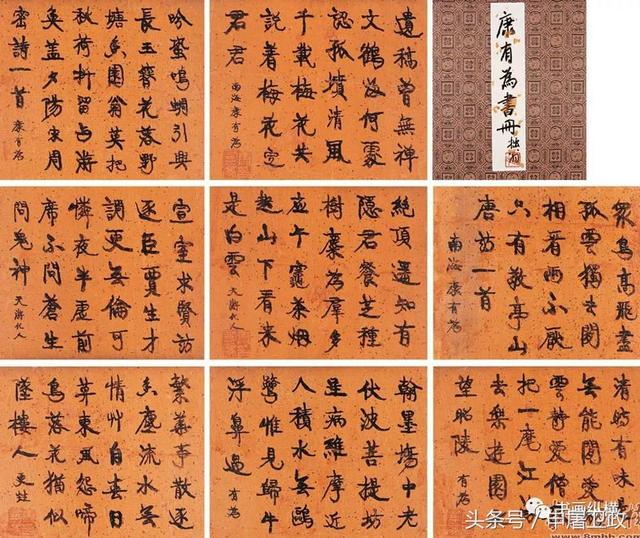 康有為書冊
遺稿曾無禪
文鶴海何處
認孤墳清風
千載梅花共
說着梅花定
君君
南海康有為
吟蛩鳴蜩引興
長玉簪花落野
塘香園翁莫把
秋荷折留与游
魚蓋夕陽宋周
密詩一首 康有為
眾鳥高飛盡
孤雲獨去閒
相看兩不厭
只有敬亭山
唐詩一首
南海康有為
絕頂遥知有
隱君餐芝種
樹麋為羣多
应午竈茶烟
起山下看来
是白雲 天游化人
宣室求賢訪
逐臣賈生才
調更無倫可
憐夜半虛前
席不問蒼生
問鬼神 天游化人
清時有味是
無能閒愛孤
雲靜愛僧
把一麾江
去樂遊園
望昭陵 有為
翰墨場中老
伏波菩提坊
里病維摩近
人積水無鷗
鷺惟見歸牛
浮鼻過 有為
繁華事散逐
香塵流水無
情艸自春日
莫東風怨啼
鳥落花猶似
墜樓人 更生
书画纵横
头条号/申屠卫政
www.8mhh.com